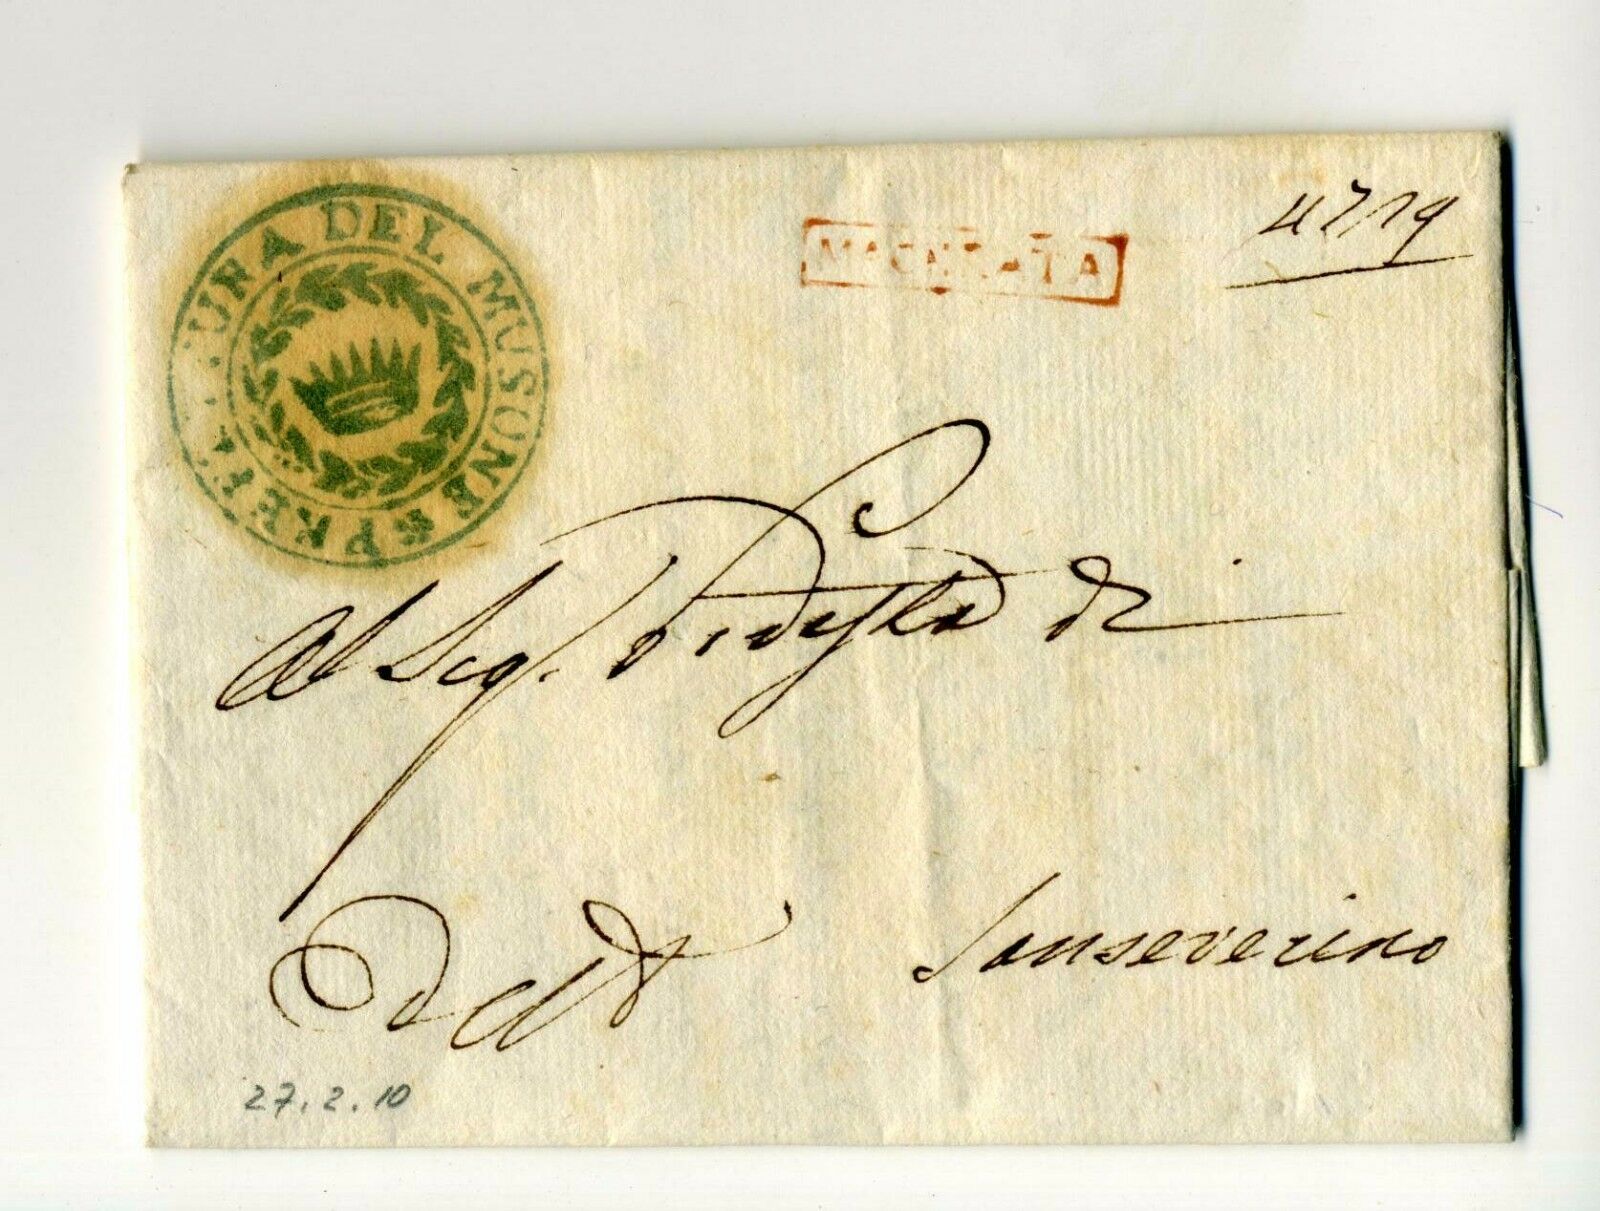 PREFETTURA DEL MUSONE
MACERATA
4719
Al Sig. Podestà di
Sanseverino
27.2.10